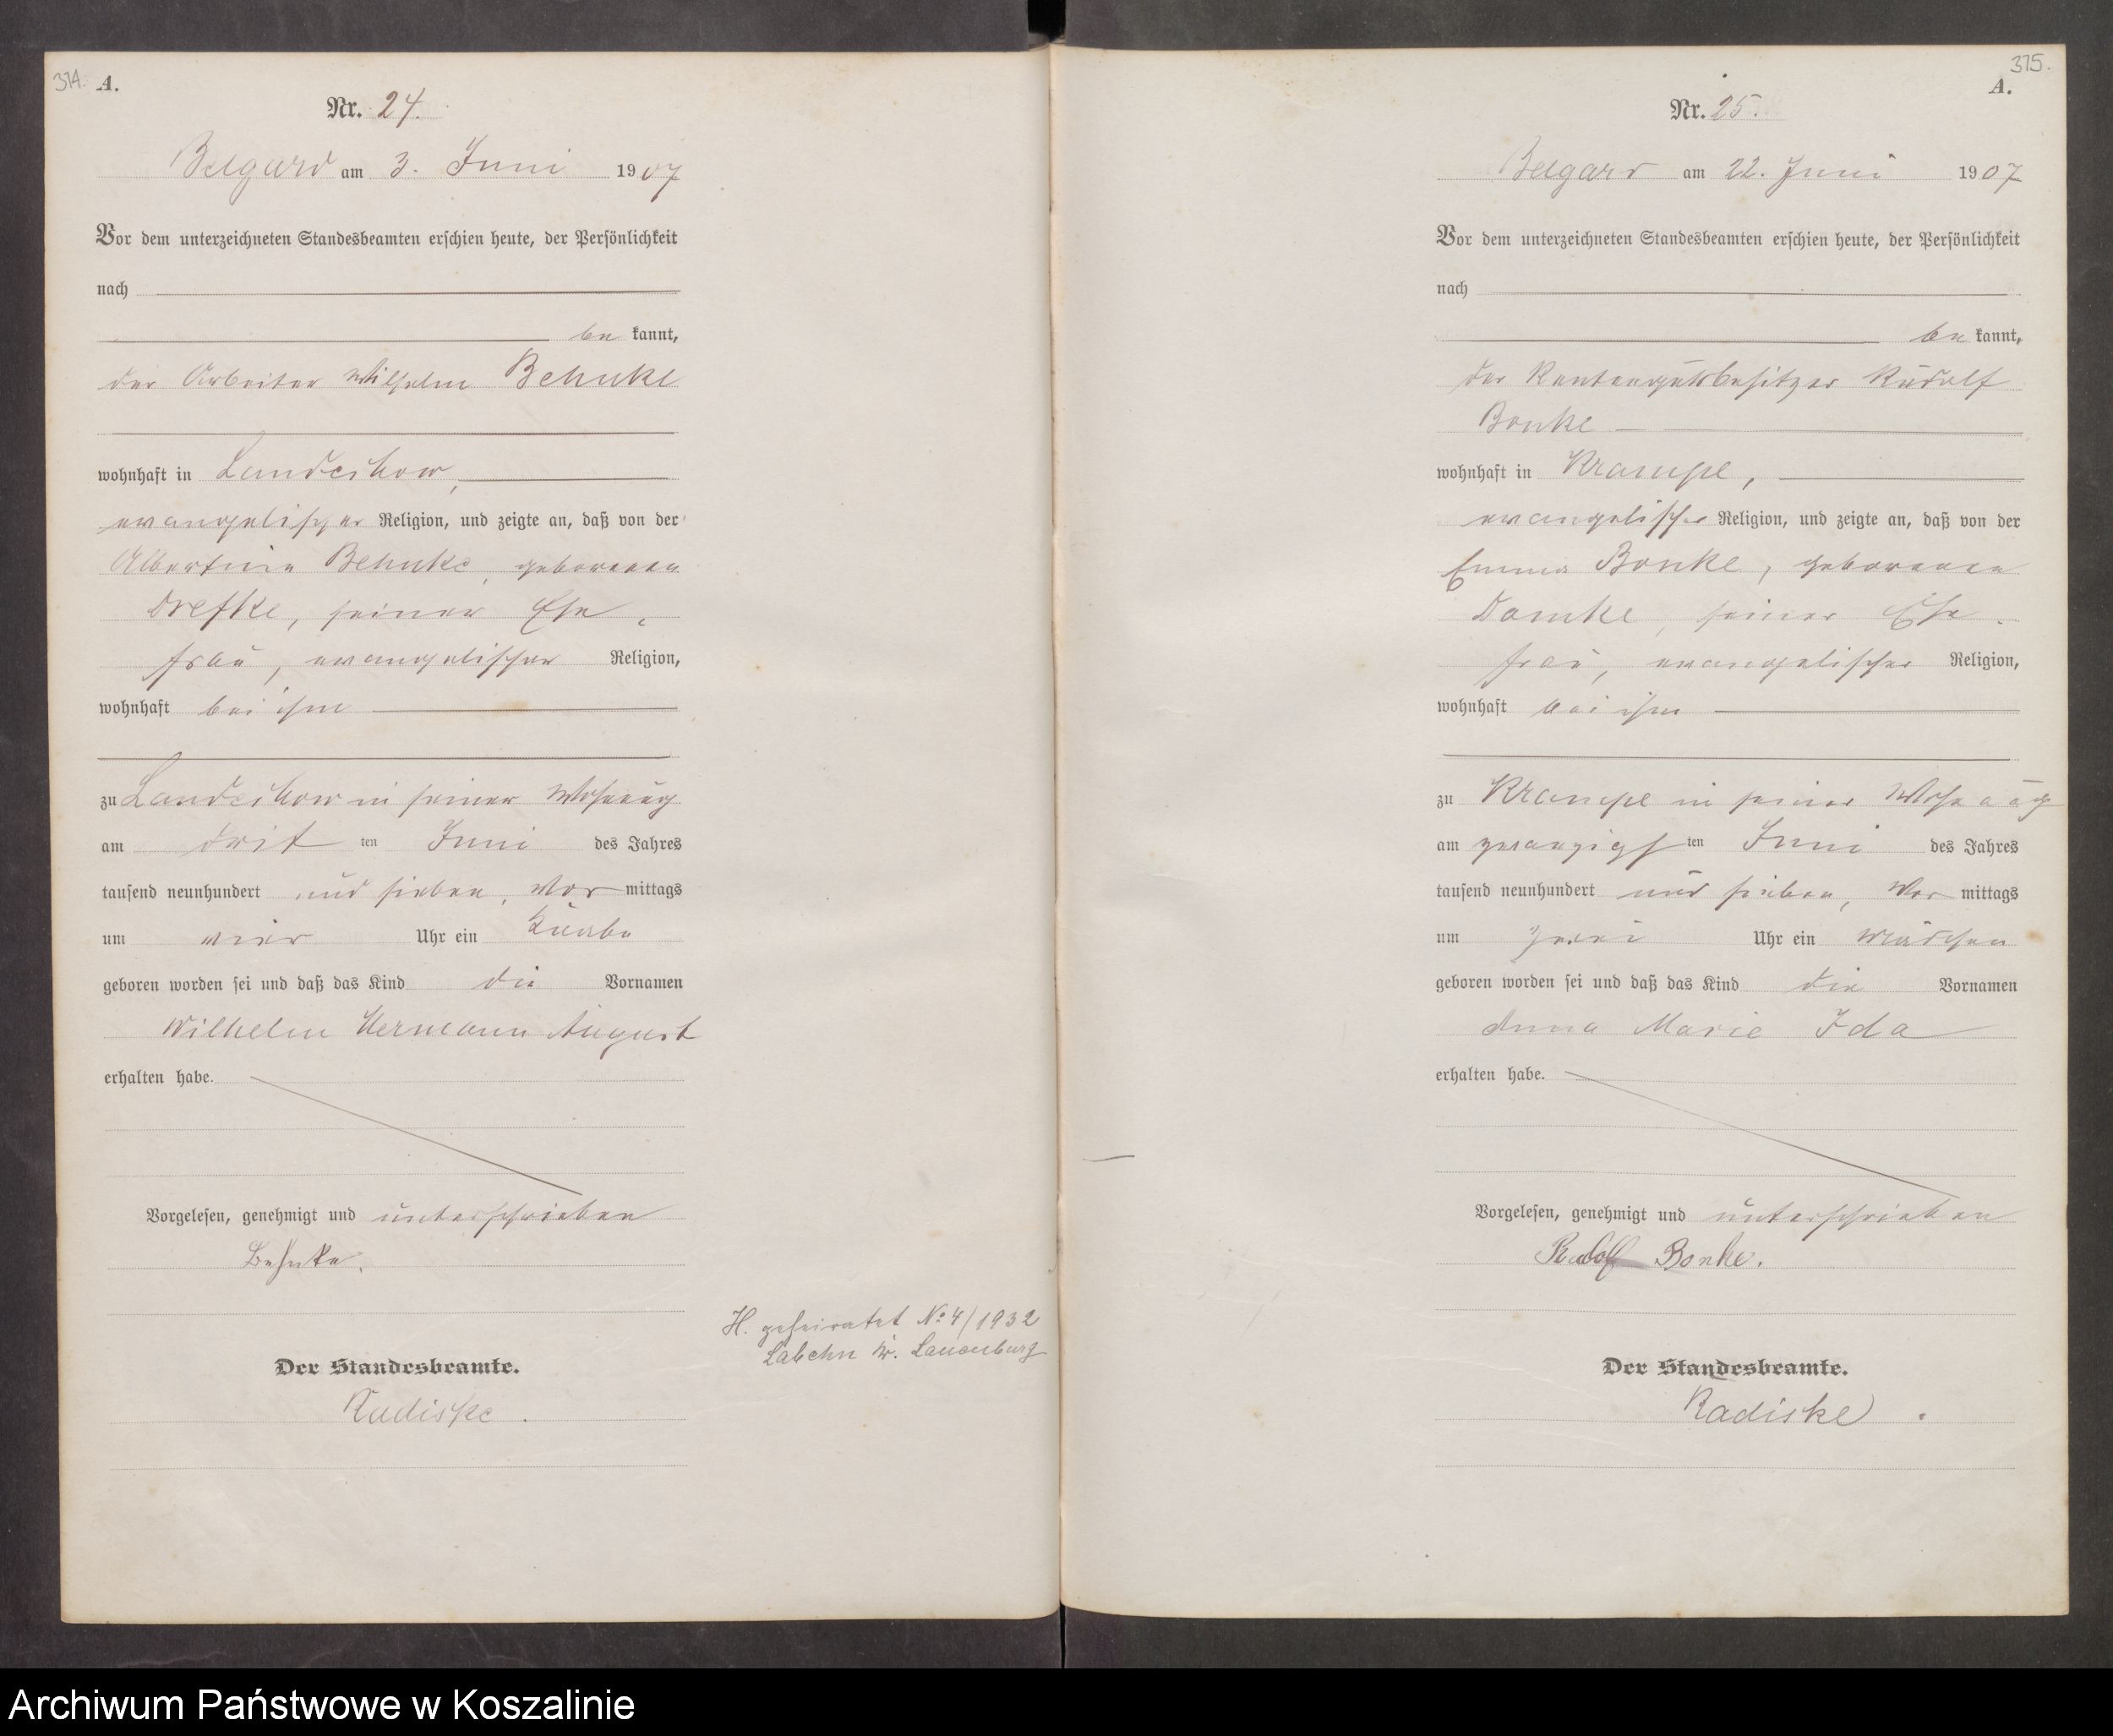 374. A.
Nr. 24.
Belgard am 3. Juni 1907
Vor dem unterzeichneten Standesbeamten erschien heute, der Persönlichkeit
nach
be kannt,
der Arbeiter Wilhelm Behnke
wohnhaft in Landechow,
evangelischer Religion, und zeigte an, daß von der
Albertine Behnke, geborenen
Drefke, seiner Ehe-
frau, evangelischer Religion,
wohnhaft bei ihm
zu Landechow in seiner Wohnung
am dritten Juni des Jahres
tausend neunhundert und sieben, Vormittags
um vier Uhr ein Knabe
geboren worden sei und daß das Kind die Vornamen
Wilhelm Hermann August
erhalten habe.
Vorgelesen, genehmigt und unterschrieben
Behnke.
Der Standesbeamte.
Radiske.
H. geheiratet No 4/1932
Labehn Kr. Lauenburg
375.
A.
Nr. 25.
Belgard am 22. Juni 1907
Vor dem unterzeichneten Standesbeamten erschien heute, der Persönlichkeit
nach
be kannt,
der Rentengutsbesitzer Rudolf
Bonke
wohnhaft in Krampe,
evangelischer Religion, und zeigte an, daß von der
Emma Bonke, geborenen
Damke, seiner Ehe-
frau, evangelischer Religion,
wohnhaft bei ihm
zu Krampe in seiner Wohnung
am zwanzigsten Juni des Jahres
tausend neunhundert und sieben, Vormittags
um zwei Uhr ein Mädchen
geboren worden sei und daß das Kind die Vornamen
Anna Marie Ida
erhalten habe.
Vorgelesen, genehmigt und unterschrieben
Rudolf Bonke.
Der Standesbeamte.
Radiske.
Archiwum Państwowe w Koszalinie